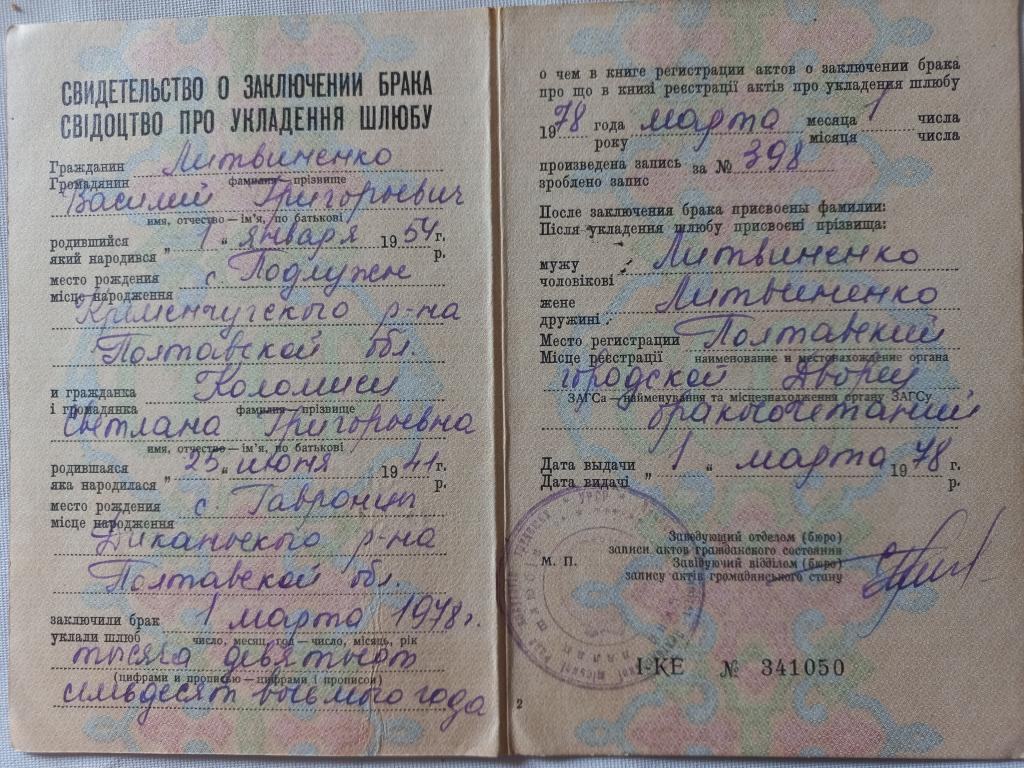 СВИДЕТЕЛЬСТВО О ЗАКЛЮЧЕНИИ БРАКА
СВІДОЦТВО ПРО УКЛАДЕННЯ ШЛЮБУ
Гражданин Литвиненко
Громадянин фамилия — прізвище
Василий Григорьевич
имя, отчество — ім'я, по батькові
родившийся „ 1 “ января 1954 г.
який народився р.
место рождения с. Подлужье
місце народження
Кременчугского р-на
Полтавской обл.
и гражданка Коломиец
і громадянка фамилия — прізвище
Светлана Григорьевна
имя, отчество — ім'я, по батькові
родившаяся „ 25 “ июня 19 г.
яка народилася р.
место рождения с. Гавронцы
місце народження
Диканьского р-на
Полтавской обл.
заключили брак 1 марта 1978 г.
уклали шлюб число, месяц, год — число, місяць, рік
тысяча девятьсот
(цифрами и прописью — цифрами і прописом)
семьдесят восьмого года
о чем в книге регистрации актов о заключении брака
про що в книзі реєстрації актів про укладення шлюбу
1978 года марта месяца 1 числа
року місяця числа
произведена запись за № 398
зроблено запис
После заключения брака присвоены фамилии:
Після укладення шлюбу присвоєні прізвища:
мужу Литвиненко
чоловікові
жене Литвиненко
дружині
Место регистрации Полтавский
Місце реєстрації наименование и местонахождение органа
городской Дворец
ЗАГСа — найменування та місцезнаходження органу ЗАГСу
бракосочетаний
Дата выдачи „ 1 “ марта 1978 г.
Дата видачі р.
Заведующий отделом (бюро)
записи актов гражданского состояния
М. П. Завідуючий відділом (бюро)
запису актів громадянського стану
I-КЕ № 341050
2